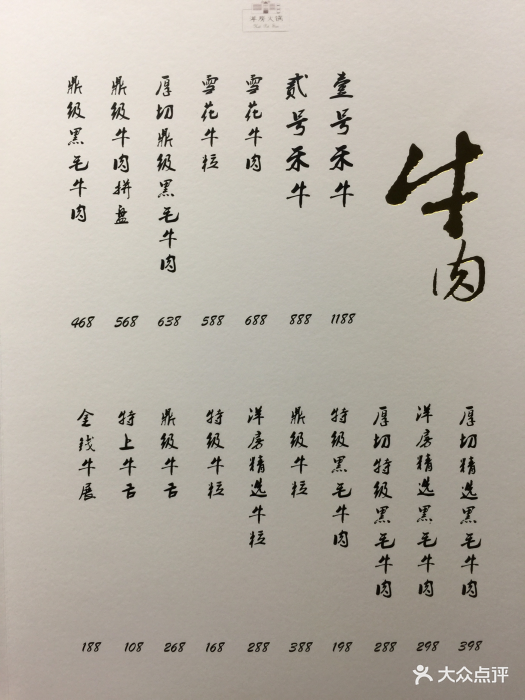 牛肉
壹号禾牛
1188
贰号禾牛
888
雪花牛肉
688
雪花牛粒
588
厚切鼎级黑毛牛肉
638
鼎级牛肉拼盘
568
鼎级黑毛牛肉
468
厚切精选黑毛牛肉
398
洋房精选黑毛牛肉
298
厚切特级黑毛牛肉
288
特级黑毛牛肉
198
鼎级牛粒
388
洋房精选牛粒
288
特级牛粒
168
鼎级牛舌
268
特上牛舌
108
金钱牛展
188
大众点评